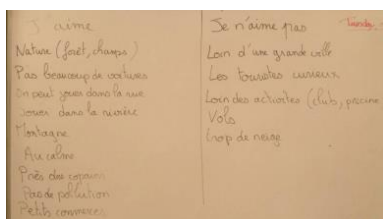 J'aime
Nature (forêt, champs)
Pas beaucoup de voitures
On peut jouer dans la rue
Jouer dans la rivière
Montagne
Au calme
Près des copains
Pas de pollution
Petits commerces
Je n'aime pas
Loin d'une grande ville
Les touristes curieux
Loin des activités (club, piscine
Vols
trop de neige